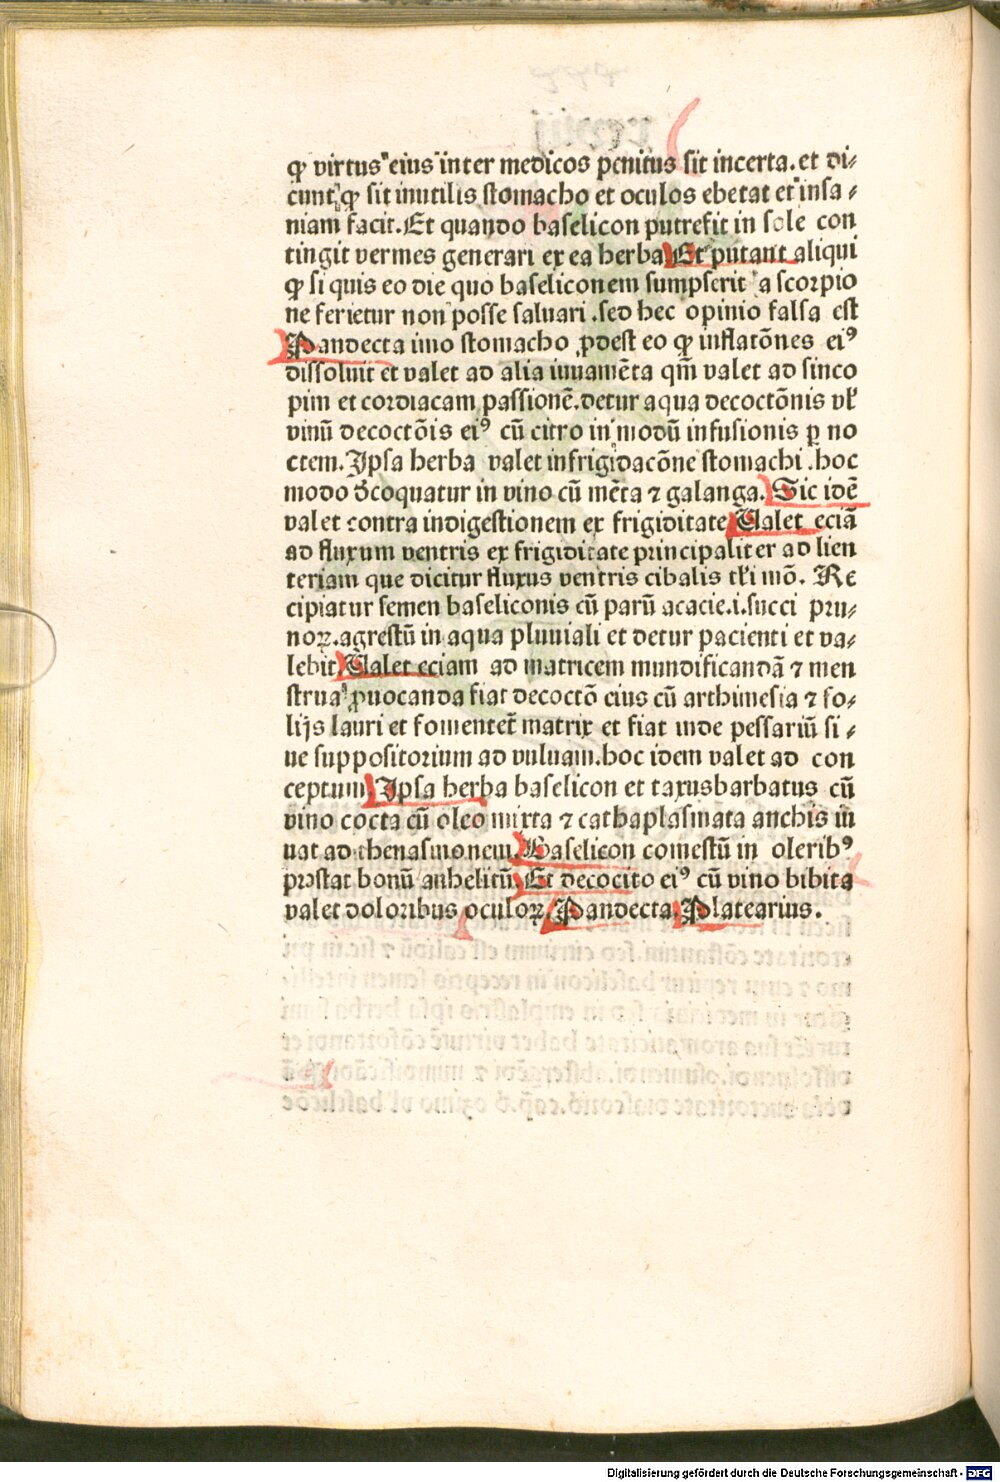 ꝙ virtus eius inter medicos penitus sit incerta. et di⸗
cunt ꝙ sit inutilis stomacho et oculos ebetat et insa⸗
niam facit. Et quando baselicon putrefit in sole con
tingit vermes generari ex ea herba Et putant aliqui
ꝙ si quis eo die quo baseliconem sumpserit a scorpio
ne ferietur non posse saluari .sed hec opinio falsa est
Pandecta imo stomacho ꝓdest eo ꝙ inflatōnes eiꝰ
dissoluit et valet ad alia iuuamēta qm̄ valet ad sinco
pim et cordiacam passionē. detur aqua decoctōnis vl̓
vinū decoctōis eiꝰ cū citro in modū infusionis ꝑ no
ctem. Ipsa herba valet in frigidacōne stomachi .hoc
modo d̓coquatur in vino cū mēta ⁊ galanga. Sic idē
valet contra indigestionem ex frigiditate Valet eciā
ad fluxum ventris ex frigiditate principaliter ad lien
teriam que dicitur fluxus ventris cibalis tl̓i mō. Re
cipiatur semen baseliconis cū parū acacie.i.succi pru⸗
noꝝ.agrestū in aqua pluuiali et detur pacienti et va⸗
lebit Valet eciam ad matricem mundificandā ⁊ men
strua ꝓuocanda fiat decoctō eius cū arthimesia ⁊ fo⸗
lijs lauri et fomentet̄ matrix et fiat inde pessariū si⸗
ue suppositorium ad vuluam.hoc idem valet ad con
ceptum Ipsa herba baselicon et taxusbarbatus cū
vino cocta cū oleo mixta ⁊ cathaplasmata anchis iu
uat ad thenasmonem. Baselicon comestū in oleribꝰ
prestat bonū anhelitū. Et decocito eiꝰ cū vino bibita
valet doloribus oculoꝝ. Pandecta. Platearius.
Digitalisierung gefördert durch die Deutsche Forschungsgemeinschaft - DFG